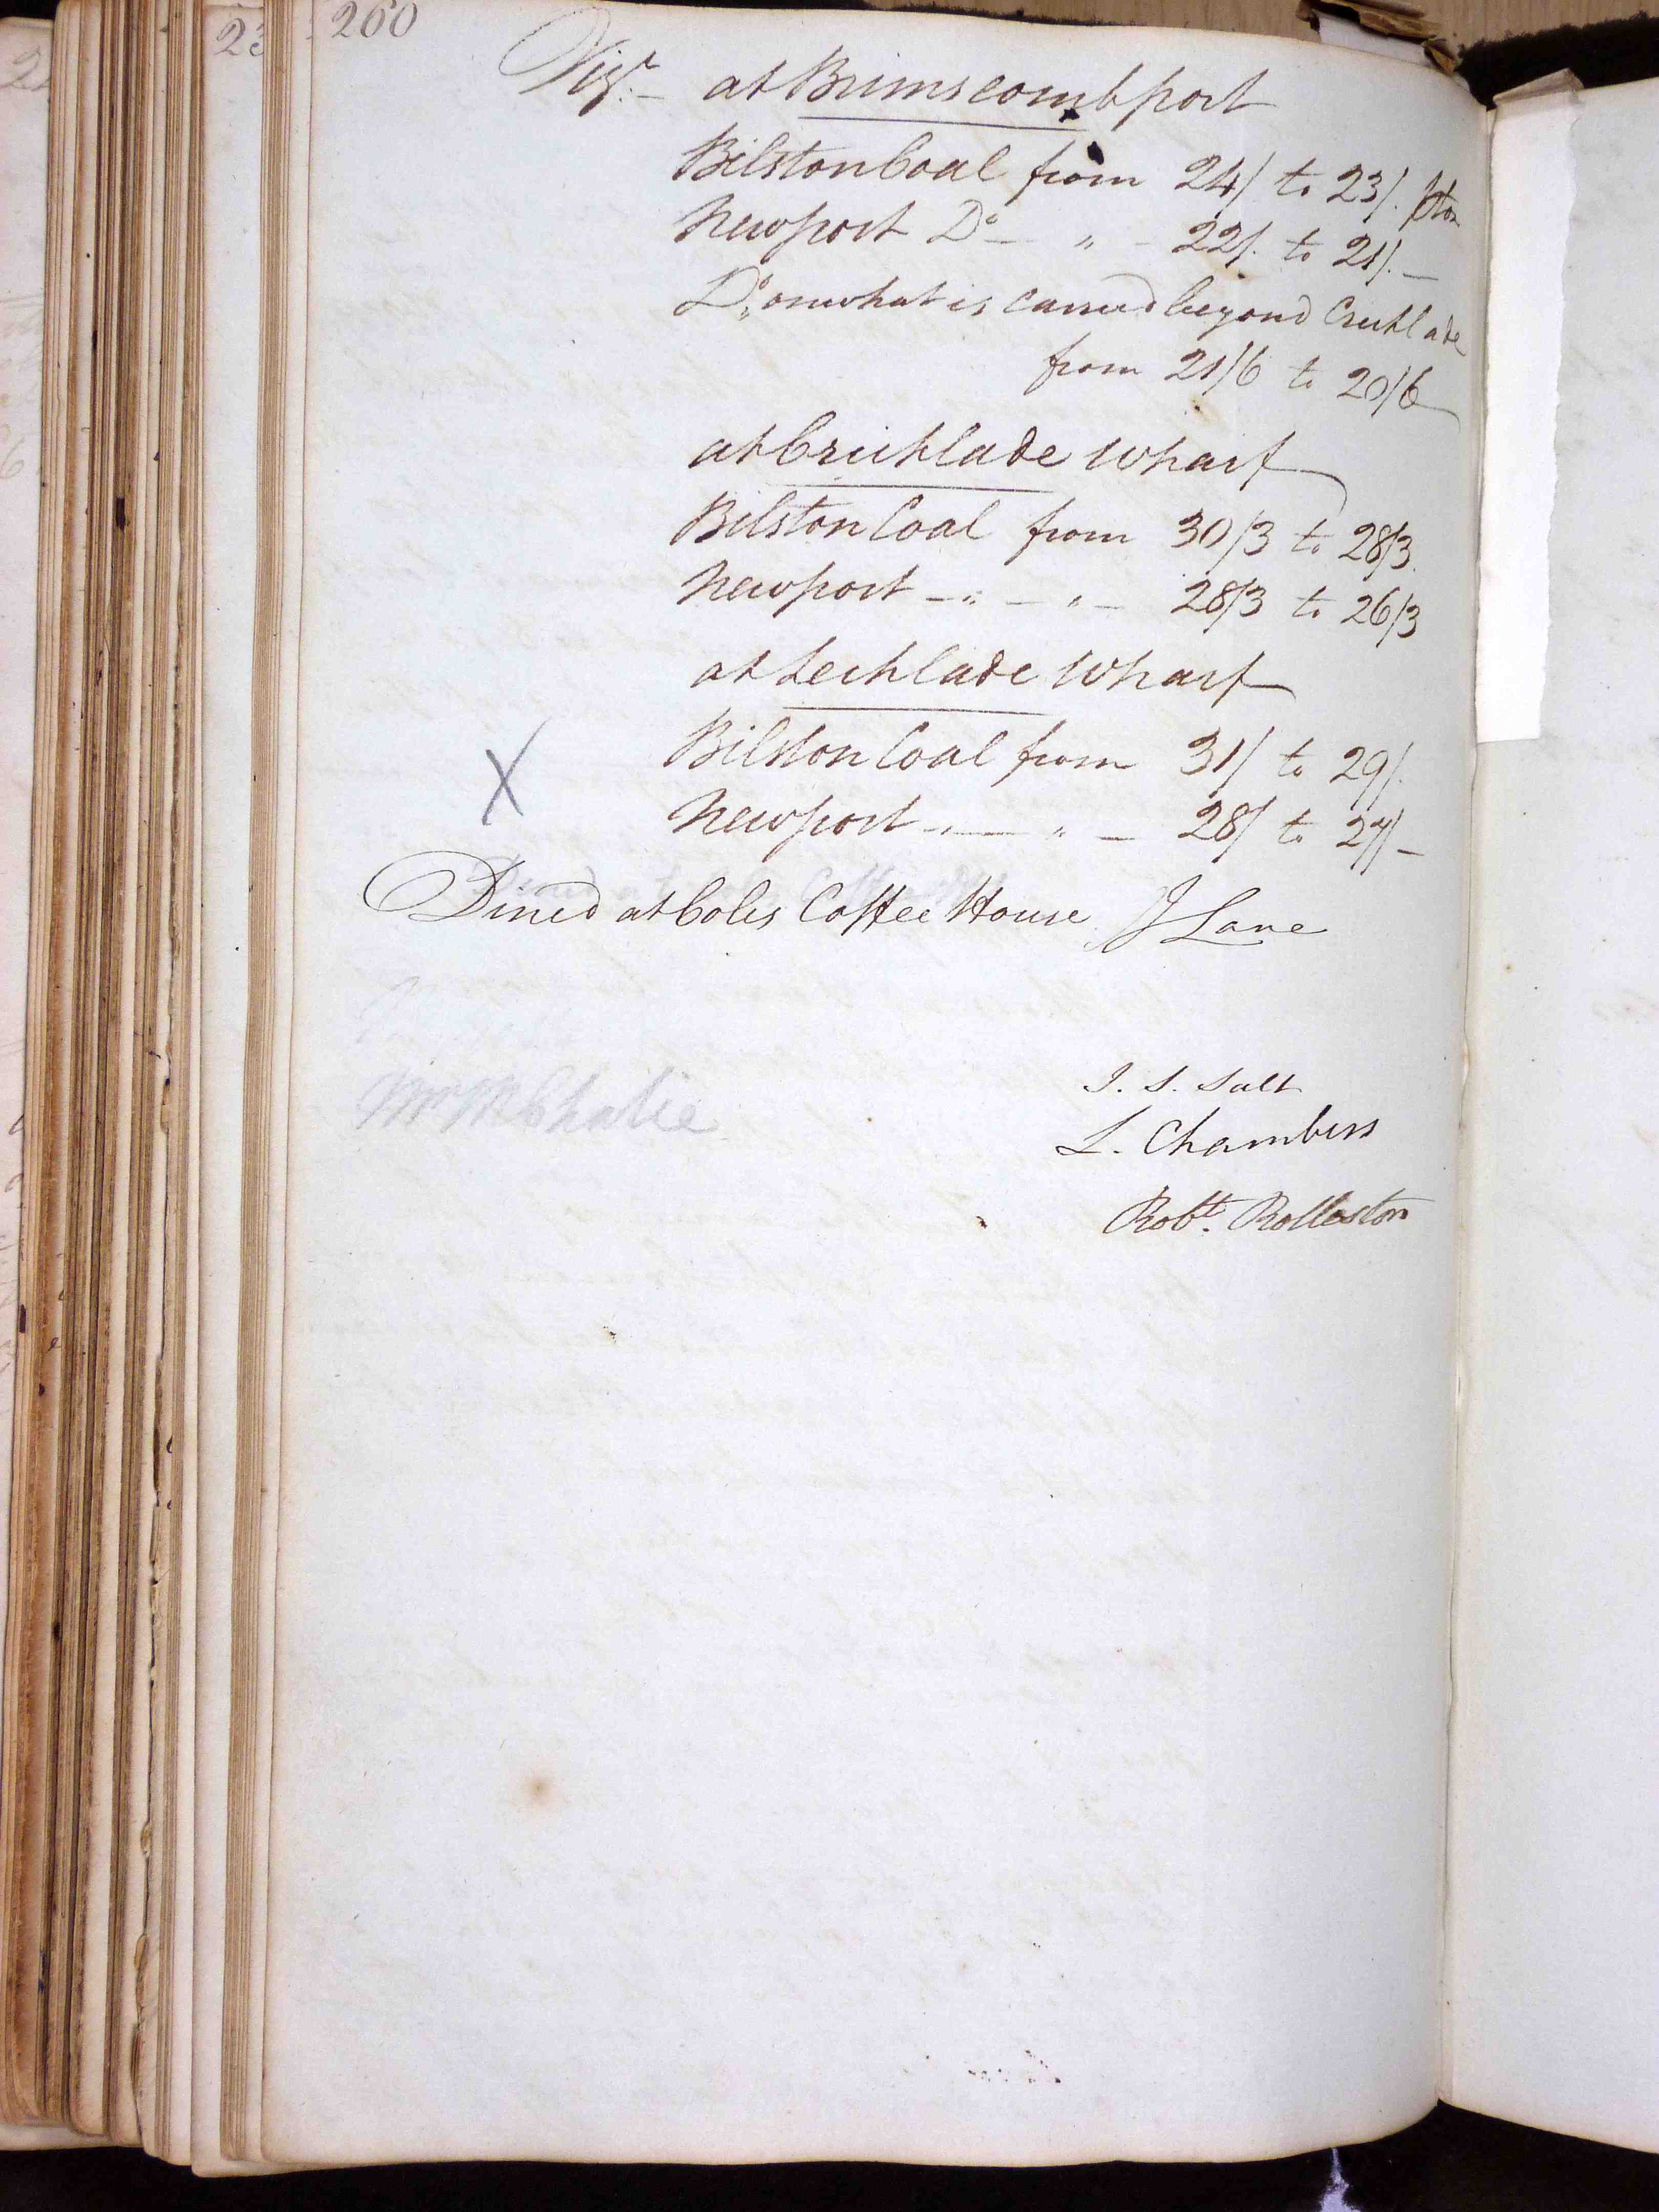 260
Vizt. at Brimscombport
Bilston Coal from 24/ to 23/. pton
Newport Do — " - 22/. to 21/. —
Do. on what is carried beyond Cricklade
from 21/6 to 20/6
at Cricklade Wharf
Bilston Coal from 30/3 to 28/3.
Newport — " — " — 28/3 to 26/3
at Lechlade Wharf
X Bilston Coal from 31/ to 29/.
Newport — " — " — 28/ to 27/ —
Dined at Coles Coffee House J Lane
J. S. Salt
Mr McChalie
L. Chambers
Robt. Rolleston